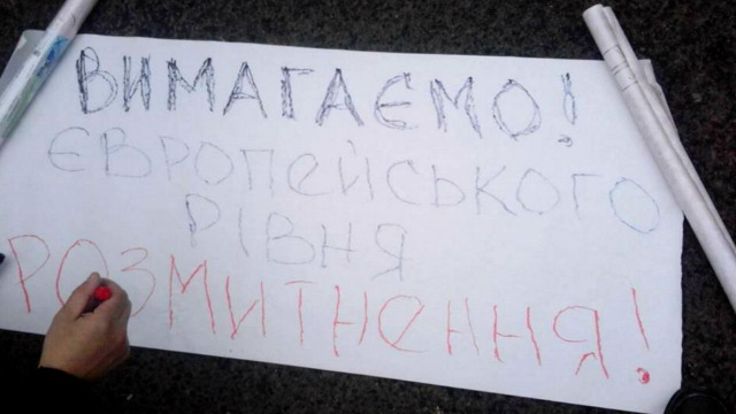 ВИМАГАЄМО!
ЄВРОПЕЙСЬКОГО
РІВНЯ
РОЗМИТНЕННЯ!